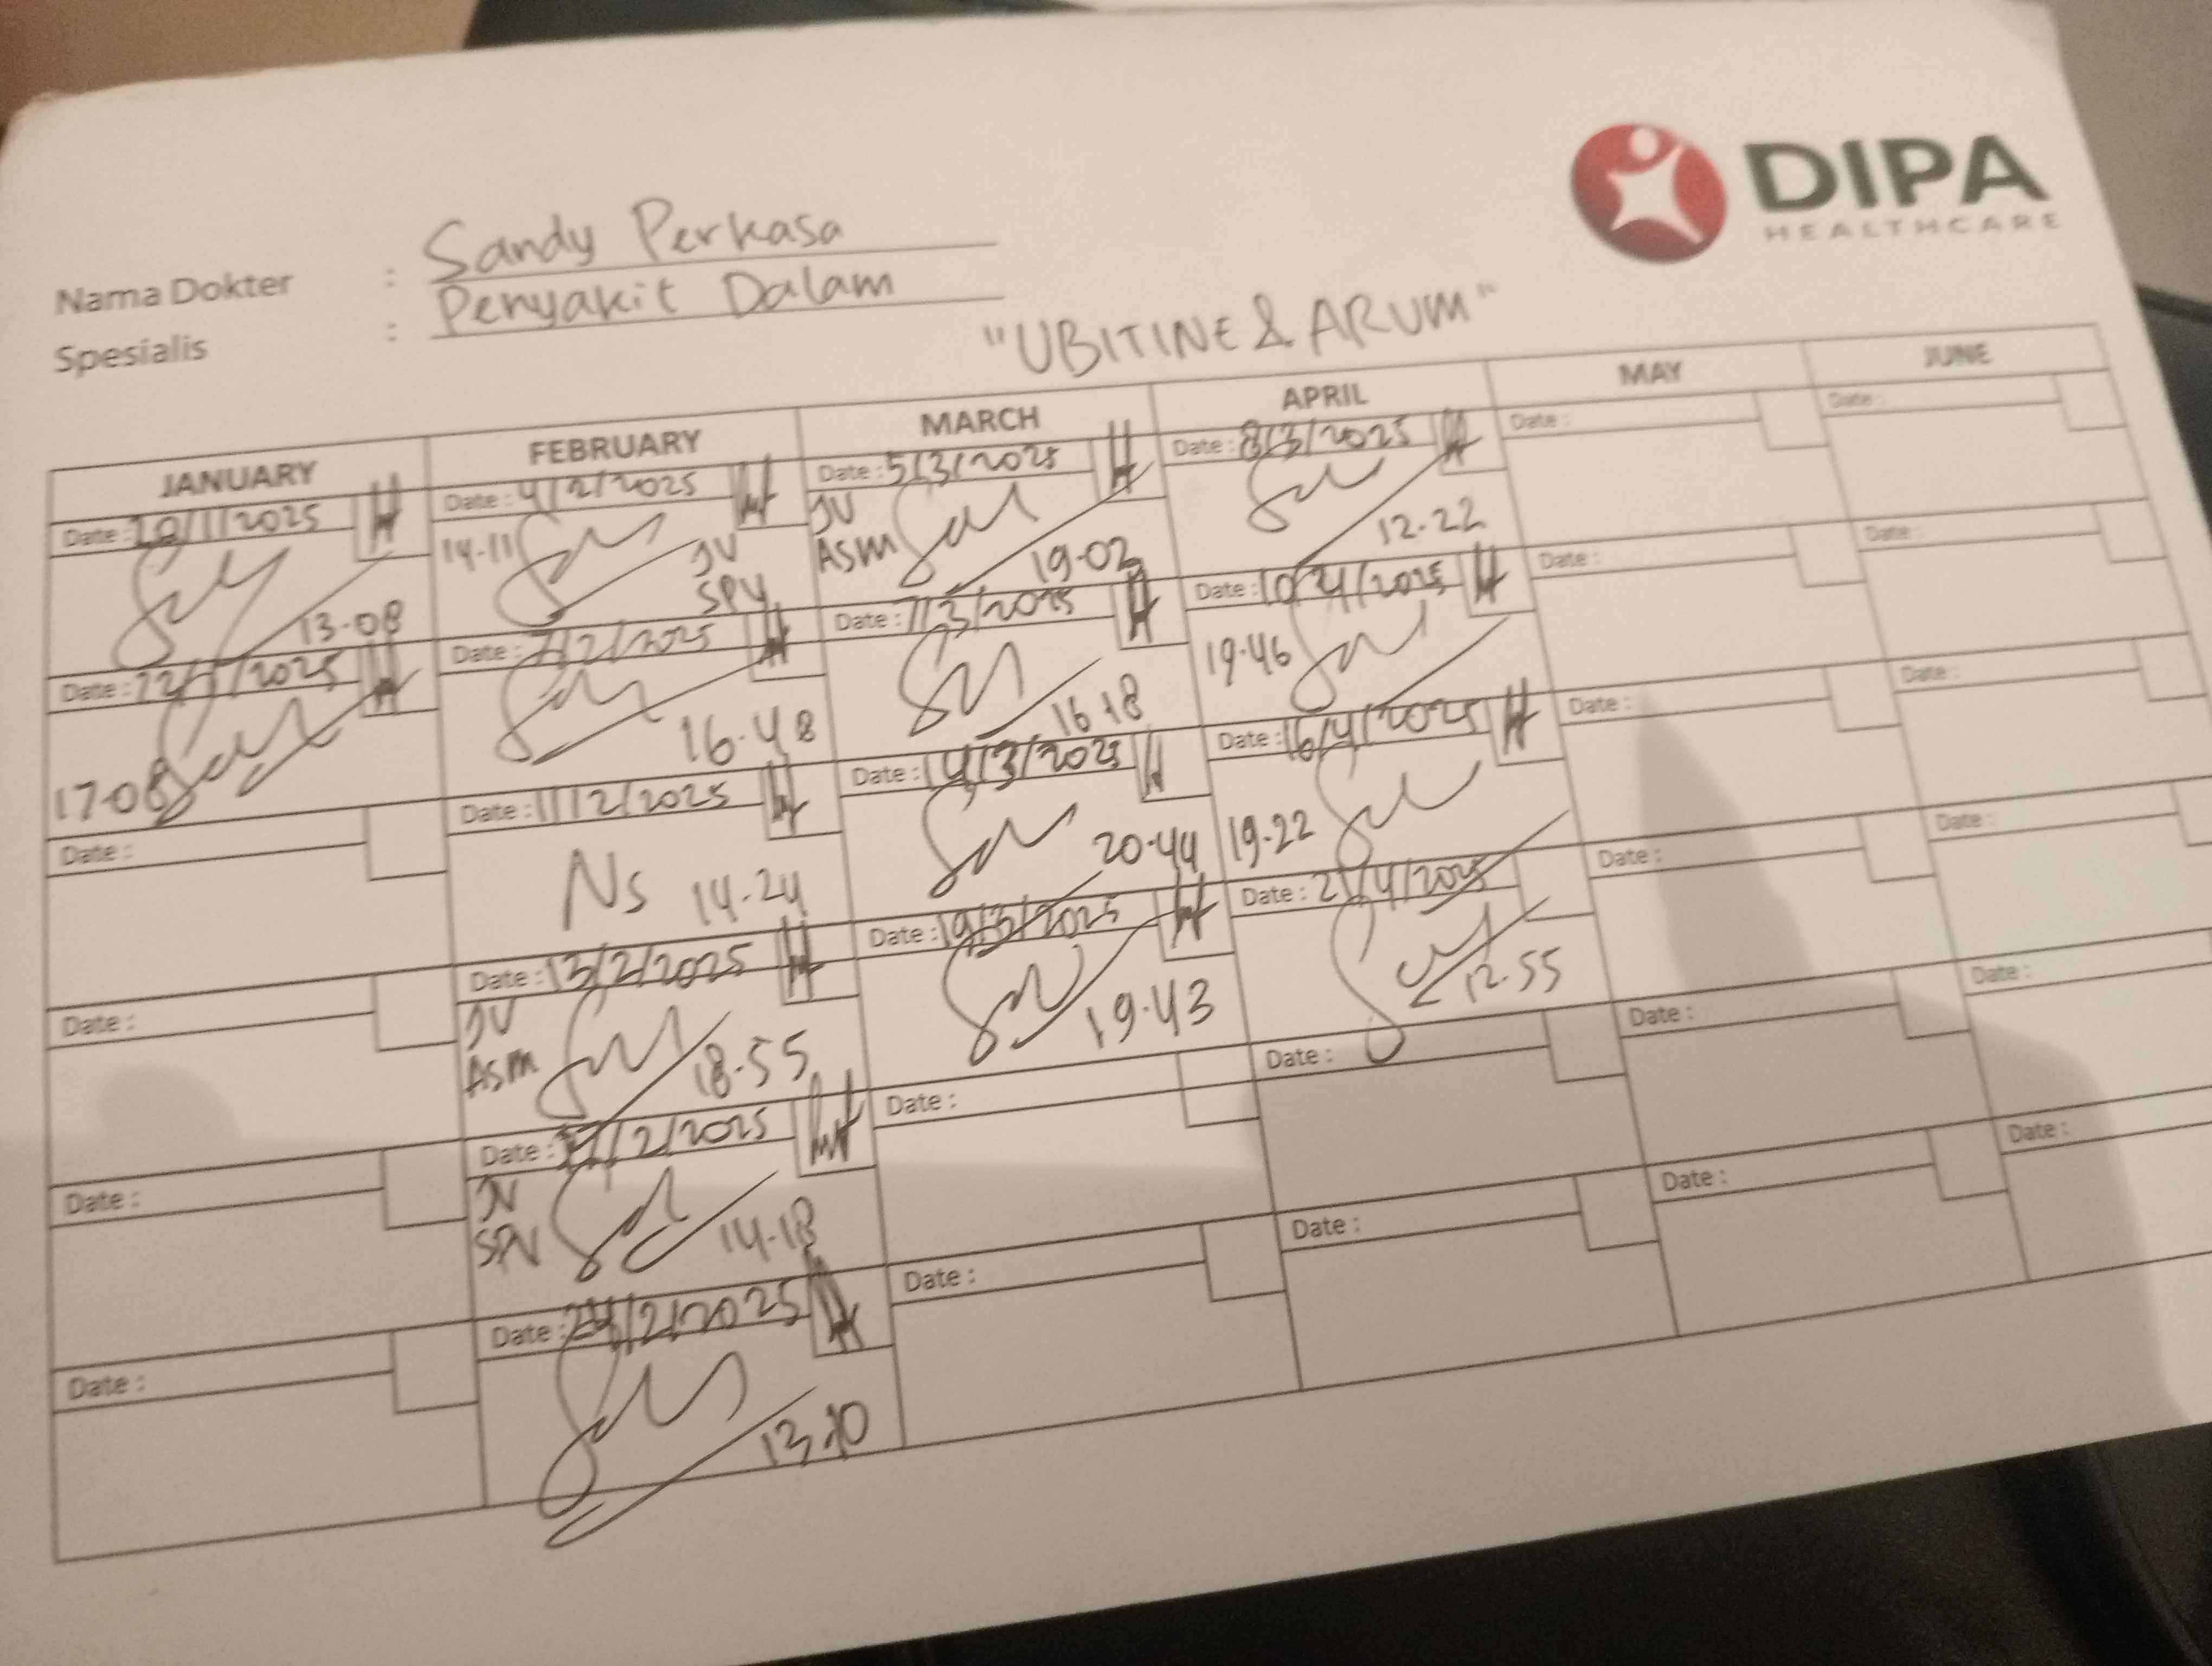 DIPA
HEALTHCARE
Nama Dokter : Sandy Perkasa
Spesialis : Penyakit Dalam
"UBITINE & ARUM"
JANUARY FEBRUARY MARCH APRIL MAY JUNE
Date : 20/1/2025
13.08
Date : 22/1/2025
17.08
Date :
Date :
Date :
Date :
Date : 4/2/2025
14.11
JV
SPV
Date : 7/2/2025
16.48
Date : 11/2/2025
Ns 14.24
Date : 13/2/2025
JV
ASM
18.55
Date : /2/2025
JV
SPV
14.18
Date : 24/2/2025
13.10
Date : 5/3/2025
JV
ASM
19.02
Date : 7/3/2025
16.18
Date : 14/3/2025
20.44
Date : 19/3/2025
19.43
Date :
Date :
Date : 8/3/2025
12.22
Date : 10/4/2025
19.46
Date : 16/4/2025
19.22
Date : 21/4/2025
12.55
Date :
Date :
Date :
Date :
Date :
Date :
Date :
Date :
Date :
Date :
Date :
Date :
Date :
Date :